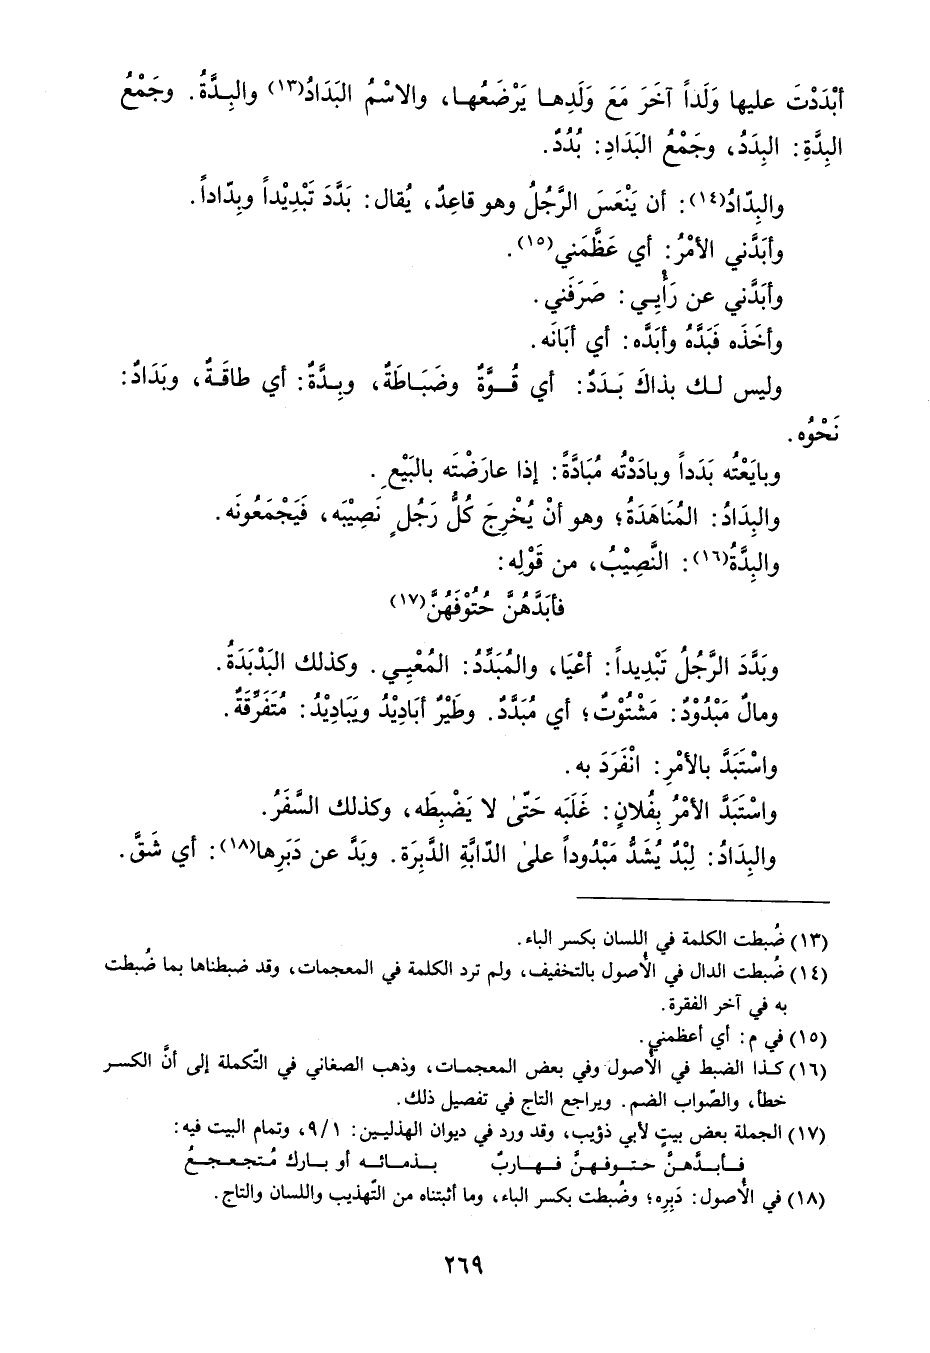 أبْدَدْتَ عليها وَلَداً آخَرَ مَعَ وَلَدِهـا يَرْضَعُهـا، والاسْمُ البَدَادُ(١٣) والبِـدَّةُ. وجَمْعُ
البِدَّةِ: البِدَدُ، وجَمْعُ البَدَادِ: بُدُدٌ.
والبِدّادُ(١٤): أن يَنْعَسَ الرَّجُلُ وهو قاعِدٌ، يُقال: بَدَّدَ تَبْدِيْداً وبِدّاداً.
وأبَدَّني الأمْرُ: أي عَظَّمَني(١٥).
وأبَدَّني عن رَأْيِـي: صَرَفَني.
وأخَذَه فَبَدَّهُ وأبَدَّه: أي أبَانَه.
وليس لـك بذاكَ بَـدَدٌ: أي قُـوَّةٌ وضَبَـاطَةٌ، وبِـدَّةٌ: أي طاقَـةٌ، وبَدَادٌ:
نَحْوُه.
وبايَعْتُه بَدَداً وبادَدْتُه مُبَادَّةً: إذا عارَضْتَه بالبَيْعِ.
والبِدَادُ: المُنَاهَدَةُ؛ وهو أنْ يُخْرِجَ كُلُّ رَجُلٍ نَصِيْبَه، فَيَجْمَعُونَه.
والبِدَّةُ(١٦): النَّصِيْبُ، من قَوْلِه:
فأبَدَّهُنَّ حُتُوْفَهُنَّ(١٧)
وبَدَّدَ الرَّجُلُ تَبْدِيداً: أعْيَا، والمُبَدِّدُ: المُعْيِـي. وكذلك البَدْبَدَةُ.
ومالٌ مَبْدُوْدٌ: مَشْتُوْتٌ؛ أي مُبَدَّدٌ. وطَيْرٌ أبَادِيْدُ ويَبَادِيْدُ: مُتَفَرِّقَةٌ.
واسْتَبَدَّ بالأمْرِ: انْفَرَدَ به.
واسْتَبَدَّ الأمْرُ بِفُلانٍ: غَلَبَه حَتّىٰ لا يَضْبِطَه، وكذلك السَّفَرُ.
والبِدَادُ: لِبْدٌ يُشَدُّ مَبْدُوداً علىٰ الدّابَّةِ الدَّبِرَة. وبَدَّ عن دَبَرِها(١٨): أي شَقَّ.
(١٣) ضُبطت الكلمة في اللسان بكسر الباء.
(١٤) ضُبطت الدال في الأصول بالتخفيف، ولم ترد الكلمة في المعجمات، وقد ضبطناها بما ضُبطت
به في آخر الفقرة.
(١٥) في م: أي أعظمني.
(١٦) كـذا الضبط في الأصول وفي بعض المعجمـات، وذهب الصغاني في التّكملة إلى أنَّ الكسر
خطأ، والصّواب الضم. ويراجع التاج في تفصيل ذلك.
(١٧) الجملة بعض بيتٍ لأبي ذؤيب، وقد ورد في ديوان الهذليـين: ٩/١، وتمام البيت فيه:
فـأبـدَّهـنَّ حـتـوفـهـنَّ فـهـاربٌ بـذمـائـه أو بـارك مُـتـجـعـجـعُ
(١٨) في الأصول: دَبِرِه؛ وضُبطت بكسر الباء، وما أثبتناه من التّهذيب واللسان والتاج.
٢٦٩